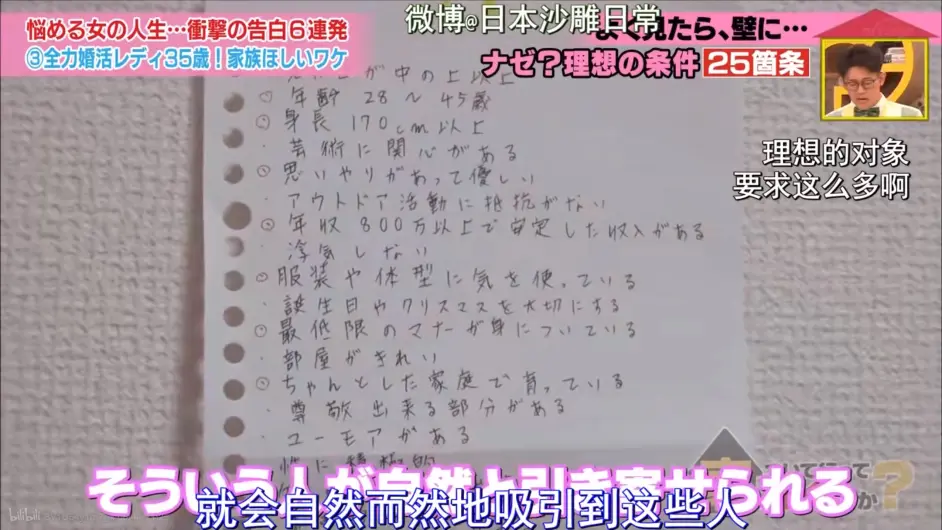 悩める女の人生…衝撃の告白6連発
③全力婚活レディ35歳！家族ほしいワケ
微博@日本沙雕日常
よく見たら、壁に…
ナゼ？理想の条件 25箇条
が中の上以上
○ 年齢 28～45歳
○ 身長 170cm以上
・ 芸術に関心がある
○ 思いやりがあって優しい
・ アウトドア活動に抵抗がない
○ 年収 800万以上で安定した収入がある
・ 浮気しない
○ 服装や体型に気を使っている
・ 誕生日やクリスマスを大切にする
○ 最低限のマナーが身についている
・ 部屋がきれい
○ ちゃんとした家庭で育っている
・ 尊敬出来る部分がある
・ ユーモアがある
理想的对象
要求这么多啊
そういう人が自然と引き寄せられる
就会自然而然地吸引到这些人
bilibili